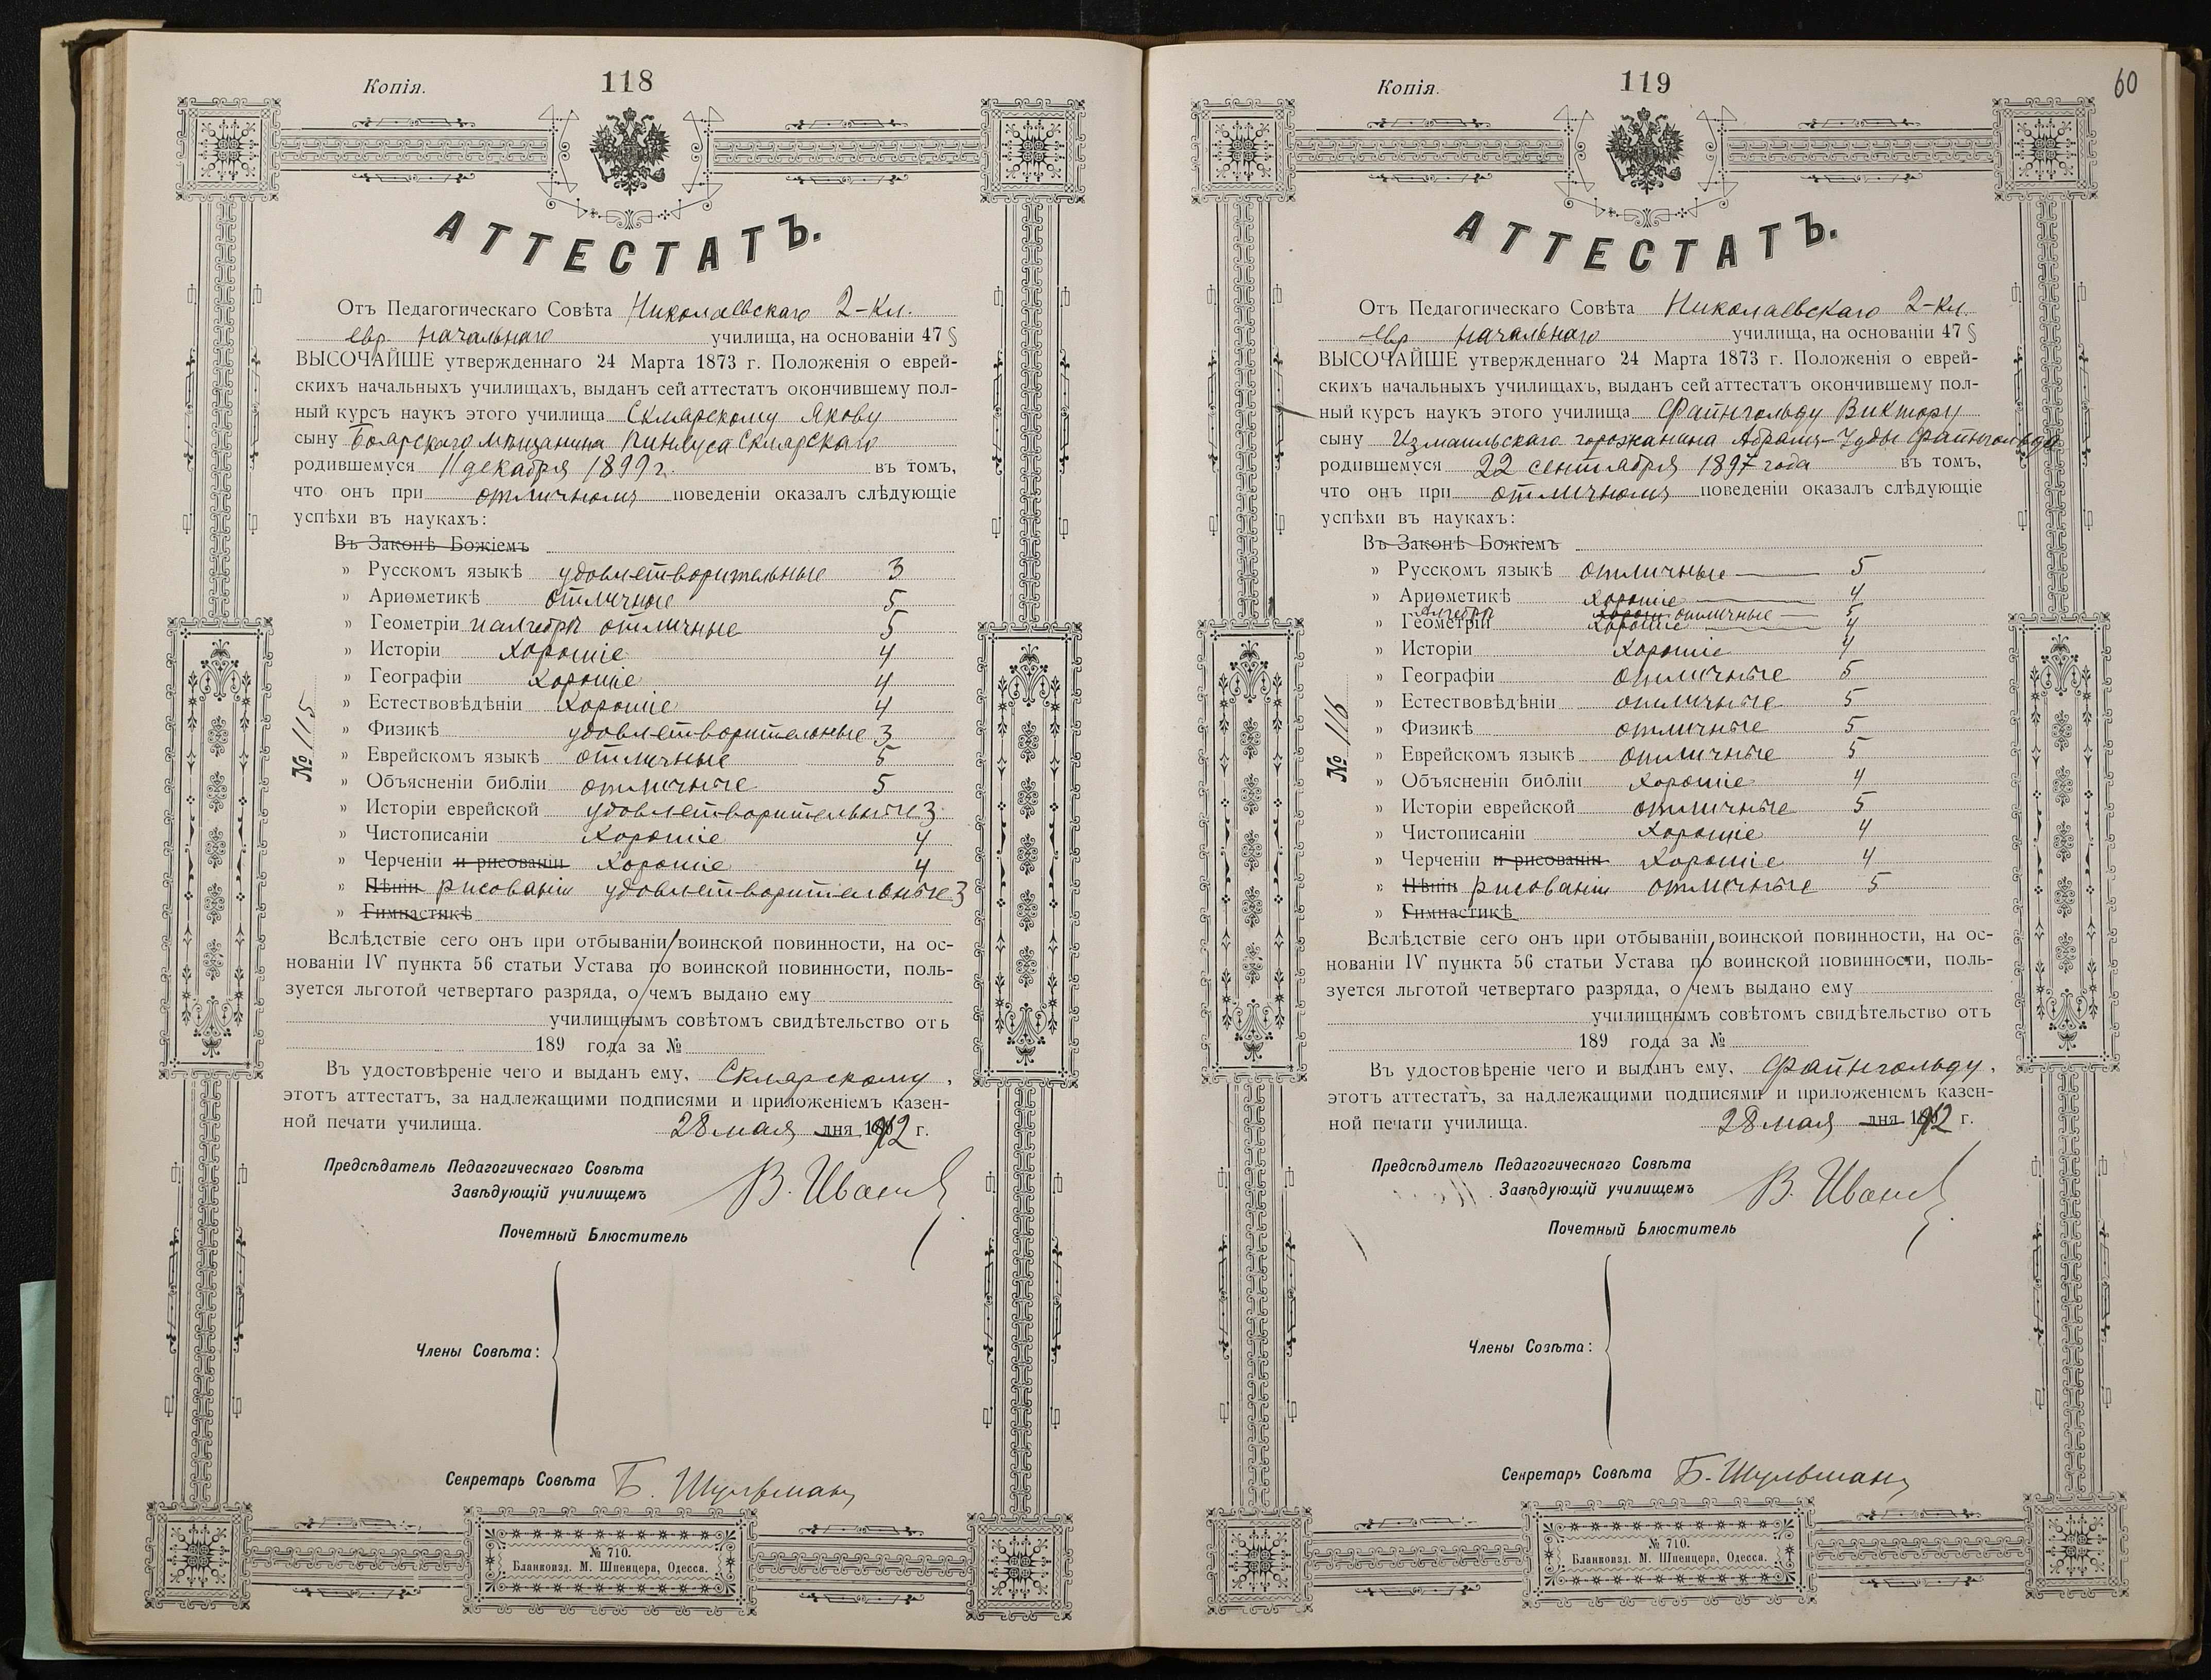 Копія.
118
АТТЕСТАТЪ.
Отъ Педагогическаго Совѣта Николаевскаго 2-кл.
евр. начальнаго училища, на основаніи 47 §
ВЫСОЧАЙШЕ утвержденнаго 24 Марта 1873 г. Положенія о еврей-
скихъ начальныхъ училищахъ, выданъ сей аттестатъ окончившему пол-
ный курсъ наукъ этого училища Склярскому Якову
сыну Боярскаго мѣщанина Пинхуса Склярскаго
родившемуся 11 декабря 1899 г. въ томъ,
что онъ при отличномъ поведеніи оказалъ слѣдующіе
успѣхи въ наукахъ:
Въ Законѣ Божіемъ
» Русскомъ языкѣ удовлетворительные 3
» Ариѳметикѣ отличные 5
» Геометріи и алгебрѣ отличные 5
» Исторіи хорошіе 4
» Географіи хорошіе 4
» Естествовѣдѣніи хорошіе 4
» Физикѣ удовлетворительные 3
» Еврейскомъ языкѣ отличные 5
» Объясненіи библіи отличные 5
» Исторіи еврейской удовлетворительные 3
» Чистописаніи хорошіе 4
» Черченіи и рисованіи хорошіе 4
» Пѣніи рисованіи удовлетворительные 3
» Гимнастикѣ
№ 115
Вслѣдствіе сего онъ при отбываніи воинской повинности, на ос-
нованіи IV пункта 56 статьи Устава по воинской повинности, поль-
зуется льготой четвертаго разряда, о чемъ выдано ему
училищнымъ совѣтомъ свидѣтельство отъ
189 года за №
Въ удостовѣреніе чего и выданъ ему, Склярскому,
этотъ аттестатъ, за надлежащими подписями и приложеніемъ казен-
ной печати училища. 28 мая дня 1912 г.
Предсѣдатель Педагогическаго Совѣта
Завѣдующій училищемъ В. Иванов
Почетный Блюститель
Члены Совѣта:
Секретарь Совѣта Б. Шульманъ
№ 710.
Бланкоизд. М. Шпенцера, Одесса.
Копія.
119
60
АТТЕСТАТЪ.
Отъ Педагогическаго Совѣта Николаевскаго 2-кл.
евр. начальнаго училища, на основаніи 47 §
ВЫСОЧАЙШЕ утвержденнаго 24 Марта 1873 г. Положенія о еврей-
скихъ начальныхъ училищахъ, выданъ сей аттестатъ окончившему пол-
ный курсъ наукъ этого училища Файнгольду Виктору
сыну Измаильскаго горожанина Абрамъ-Іуды Файнгольда
родившемуся 22 сентября 1897 года въ томъ,
что онъ при отличномъ поведеніи оказалъ слѣдующіе
успѣхи въ наукахъ:
Въ Законѣ Божіемъ
» Русскомъ языкѣ отличные 5
» Ариѳметикѣ хорошіе 4
Алгебрѣ отличные 5
» Геометріи хорошіе 4
» Исторіи хорошіе 4
» Географіи отличные 5
» Естествовѣдѣніи отличные 5
» Физикѣ отличные 5
» Еврейскомъ языкѣ отличные 5
» Объясненіи библіи хорошіе 4
» Исторіи еврейской отличные 5
» Чистописаніи хорошіе 4
» Черченіи и рисованіи хорошіе 4
» Пѣніи рисованіи отличные 5
» Гимнастикѣ
№ 116
Вслѣдствіе сего онъ при отбываніи воинской повинности, на ос-
нованіи IV пункта 56 статьи Устава по воинской повинности, поль-
зуется льготой четвертаго разряда, о чемъ выдано ему
училищнымъ совѣтомъ свидѣтельство отъ
189 года за №
Въ удостовѣреніе чего и выданъ ему, Файнгольду,
этотъ аттестатъ, за надлежащими подписями и приложеніемъ казен-
ной печати училища. 28 мая дня 1912 г.
Предсѣдатель Педагогическаго Совѣта
Завѣдующій училищемъ В. Иванов
Почетный Блюститель
Члены Совѣта:
Секретарь Совѣта Б. Шульманъ
№ 710.
Бланкоизд. М. Шпенцера, Одесса.